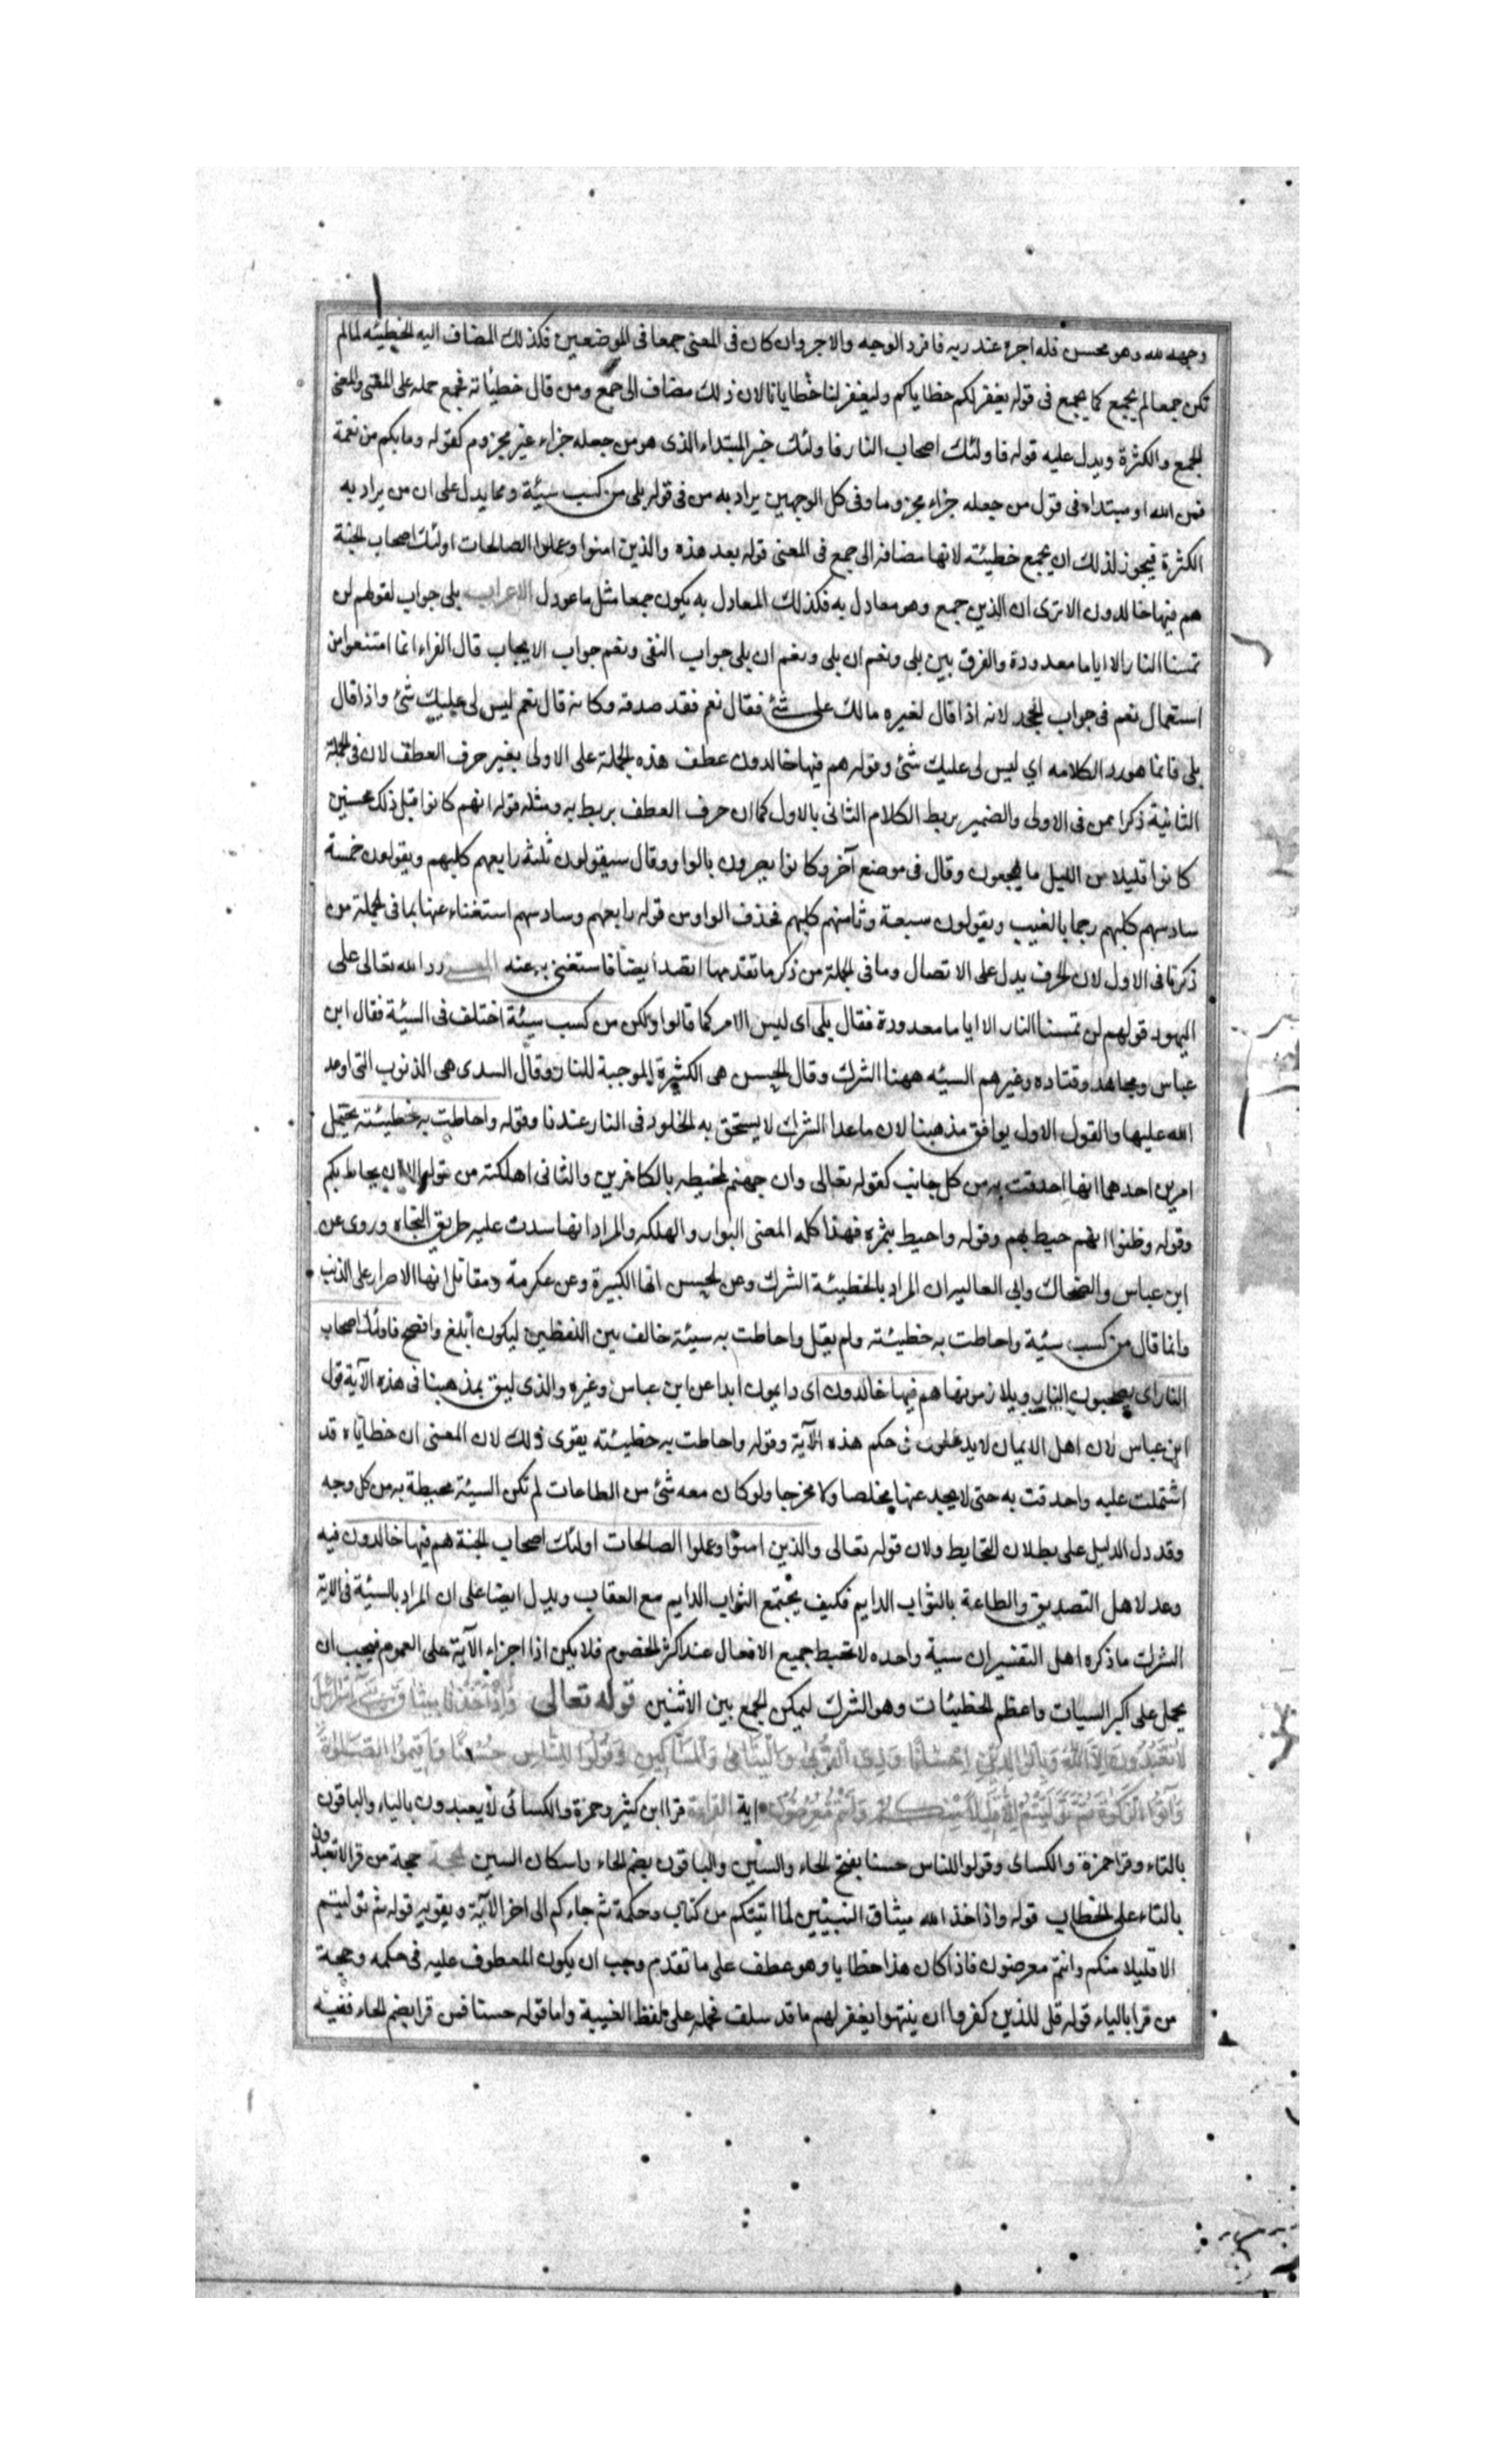 وجهه لله وهو محسن فله اجره عند ربه فافرد الوجه والاجر وان كان فى المعنى جمعا فى الموضعين فكذلك المضاف اليه الخطيئه لما لم
تكن جمعا لم يجمع كما يجمع فى قوله يغفر لكم خطاياكم وليغفر لنا خطايانا لان ذلك مضاف الى جمع ومن قال خطيئاته فجمع حمله على المعنى والمعنى
الجمع والكثرة ويدل عليه قوله فاولئك اصحاب النار فاولئك خبر المبتداء الذى هو من جعله جزاء غير مجزوم كقوله وما بكم من نعمة
فمن الله او مبتداء فى قول من جعله جزاء مجزوما وفى كل الوجهين يراد به من فى قوله بلى من كسب سيئة ومما يدل على ان من يراد به
الكثرة فيجوز لذلك ان يجمع خطيئته لانها مضافة الى جمع فى المعنى قوله بعد هذه والذين امنوا وعملوا الصالحات اولئك اصحاب الجنة
هم فيها خالدون الا ترى ان الذين جمع وهو معادل به فكذلك المعادل به يكون جمعا مثل ما عودل الاعراب بلى جواب لقولهم لن
تمسنا النار الا اياما معدودة والفرق بين بلى ونعم ان بلى ونعم ان بلى جواب النفى ونعم جواب الايجاب قال الفراء انما امتنعوا من
استعمال نعم فى جواب الجحد لانه اذا قال لغيره مالك على شئ فقال نعم فقد صدقه وكانه قال نعم ليس لى عليك شئ واذا قال
بلى فانما هو رد لكلامه اي ليس لى عليك شئ وقوله هم فيها خالدون عطف هذه الجملة على الاولى بغير حرف العطف لان فى الجملة
الثانية ذكرا ممن فى الاولى والضمير يربط الكلام الثانى بالاول كما ان حرف العطف يربط به ومثله قوله انهم كانوا قبل ذلك محسنين
كانوا قليلا من الليل ما يهجعون وقال فى موضع آخر وكانوا يصرون بالواو وقال سيقولون ثلثة رابعهم كلبهم ويقولون خمسة
سادسهم كلبهم رجما بالغيب ويقولون سبعة وثامنهم كلبهم فحذف الواو من قوله رابعهم وسادسهم استغناء عنها بما فى الجملة من
ذكرنا فى الاول لان الحرف يدل على الاتصال وما فى الجملة من ذكر ما تقدمها اتصد ايضا فاستغنى به عنه رد الله تعالى على
اليهود قولهم لن تمسنا النار الا اياما معدودة فقال بلى اى ليس الامر كما قالوا ولكن من كسب سيئة اختلف فى السيئة فقال ابن
عباس ومجاهد وقتاده وغيرهم السيئه ههنا الشرك وقال الحسن هى الكثيرة الموجبة للنار وقال السدى هى الذنوب التى اوعد
الله عليها والقول الاول يوافق مذهبنا لان ما عدا الشرك لا يستحق به الخلود فى النار عندنا وقوله واحاطت به خطيئته يحتمل
امرين احدهما انها احدقت به من كل جانب كقوله تعالى وان جهنم لمحيطه بالكافرين والثانى اهلكته من قوله الا ان يحاط بكم
وقوله وظنوا انهم احيط بهم وقوله واحيط بثمره فهذا كله المعنى البوار والهلكه والمراد انها سدت عليه طريق النجاه وروى عن
ابن عباس والضحاك وابى العاليه ان المراد بالخطيئة الشرك وعن الحسن انها الكبيرة وعن عكرمة ومقاتل انها الاصرار على الذنب
وانما قال من كسب سيئة واحاطت به خطيئته ولم يقل واحاطت به سيئته خالف بين اللفظين ليكون ابلغ وافصح فاولئك اصحاب
النار اى يصحبون النار ويلازمونها هم فيها خالدون اى دايمون ابدا عن ابن عباس وغيره والذى يليق بمذهبنا فى هذه الآية قول
ابن عباس لان اهل الايمان لا يدخلون فى حكم هذه الآية وقوله واحاطت به خطيئته يقوى ذلك لان المعنى ان خطاياه قد
اشتملت عليه واحدقت به حتى لا يجد عنها مخلصا ولا مخرجا ولو كان معه شئ من الطاعات لم تكن السيئة محيطة به من كل وجه
وقد دل الدليل على بطلان التحابط ولان قوله تعالى والذين امنوا وعملوا الصالحات اولئك اصحاب الجنة هم فيها خالدون فيه
وعد لاهل التصديق والطاعة بالثواب الدايم فكيف يجتمع الثواب الدايم مع العقاب ويدل ايضا على ان المراد بالسيئة فى الاية
الشرك ما ذكره اهل التفسير ان سيئة واحده لا تحبط جميع الافعال عند اكثر الخصوم فلا يمكن اذا اجزاء الآية على العموم فيجب ان
يحمل على اكبر السيات واعظم الخطيئات وهو الشرك ليمكن الجمع بين الاثنين قوله تعالى وَاِذْ اَخَذْنَا مِيثَاقَ بَنِى اِسْرَائِيلَ
لَا تَعْبُدُونَ اِلَّا اللهَ وَبِالْوَالِدَيْنِ اِحْسَانًا وَذِى الْقُرْبَى وَالْيَتَامَى وَالْمَسَاكِينِ وَقُولُوا لِلنَّاسِ حُسْنًا وَاَقِيمُوا الصَّلٰوةَ
وَآتُوا الزَّكٰوةَ ثُمَّ تَوَلَّيْتُمْ اِلَّا قَلِيلًا مِنْكُمْ وَاَنْتُمْ مُعْرِضُونَ اية القراءة قرا ابن كثير وحمزة والكسائى لا يعبدون بالياء والباقون
بالتاء وقرا حمزة والكساى وقولوا للناس حسنا بفتح الحاء والسين والباقون بضم الحاء واسكان السين الحجة حجة من قرا لا تعبدون
بالتاء على الخطاب قوله واذ اخذ الله ميثاق النبيين لما اتيتكم من كتاب وحكمة ثم جاءكم الى اخر الآية ويقويه قوله ثم توليتم
الا قليلا منكم وانتم معرضون فاذا كان هذا خطابا وهو عطف على ما تقدم وجب ان يكون المعطوف عليه فى حكمه وحجة
من قرا بالياء قوله قل للذين كفروا ان ينتهوا يغفر لهم ما قد سلف فحمله على لفظ الغيبة واما قوله حسنا فمن قرا بضم الحاء ففيه